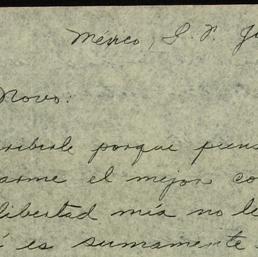 México, D. F. Ju
Novo:
cribirle porque piens
arme el mejor co
libertad mía no le
es sumamente